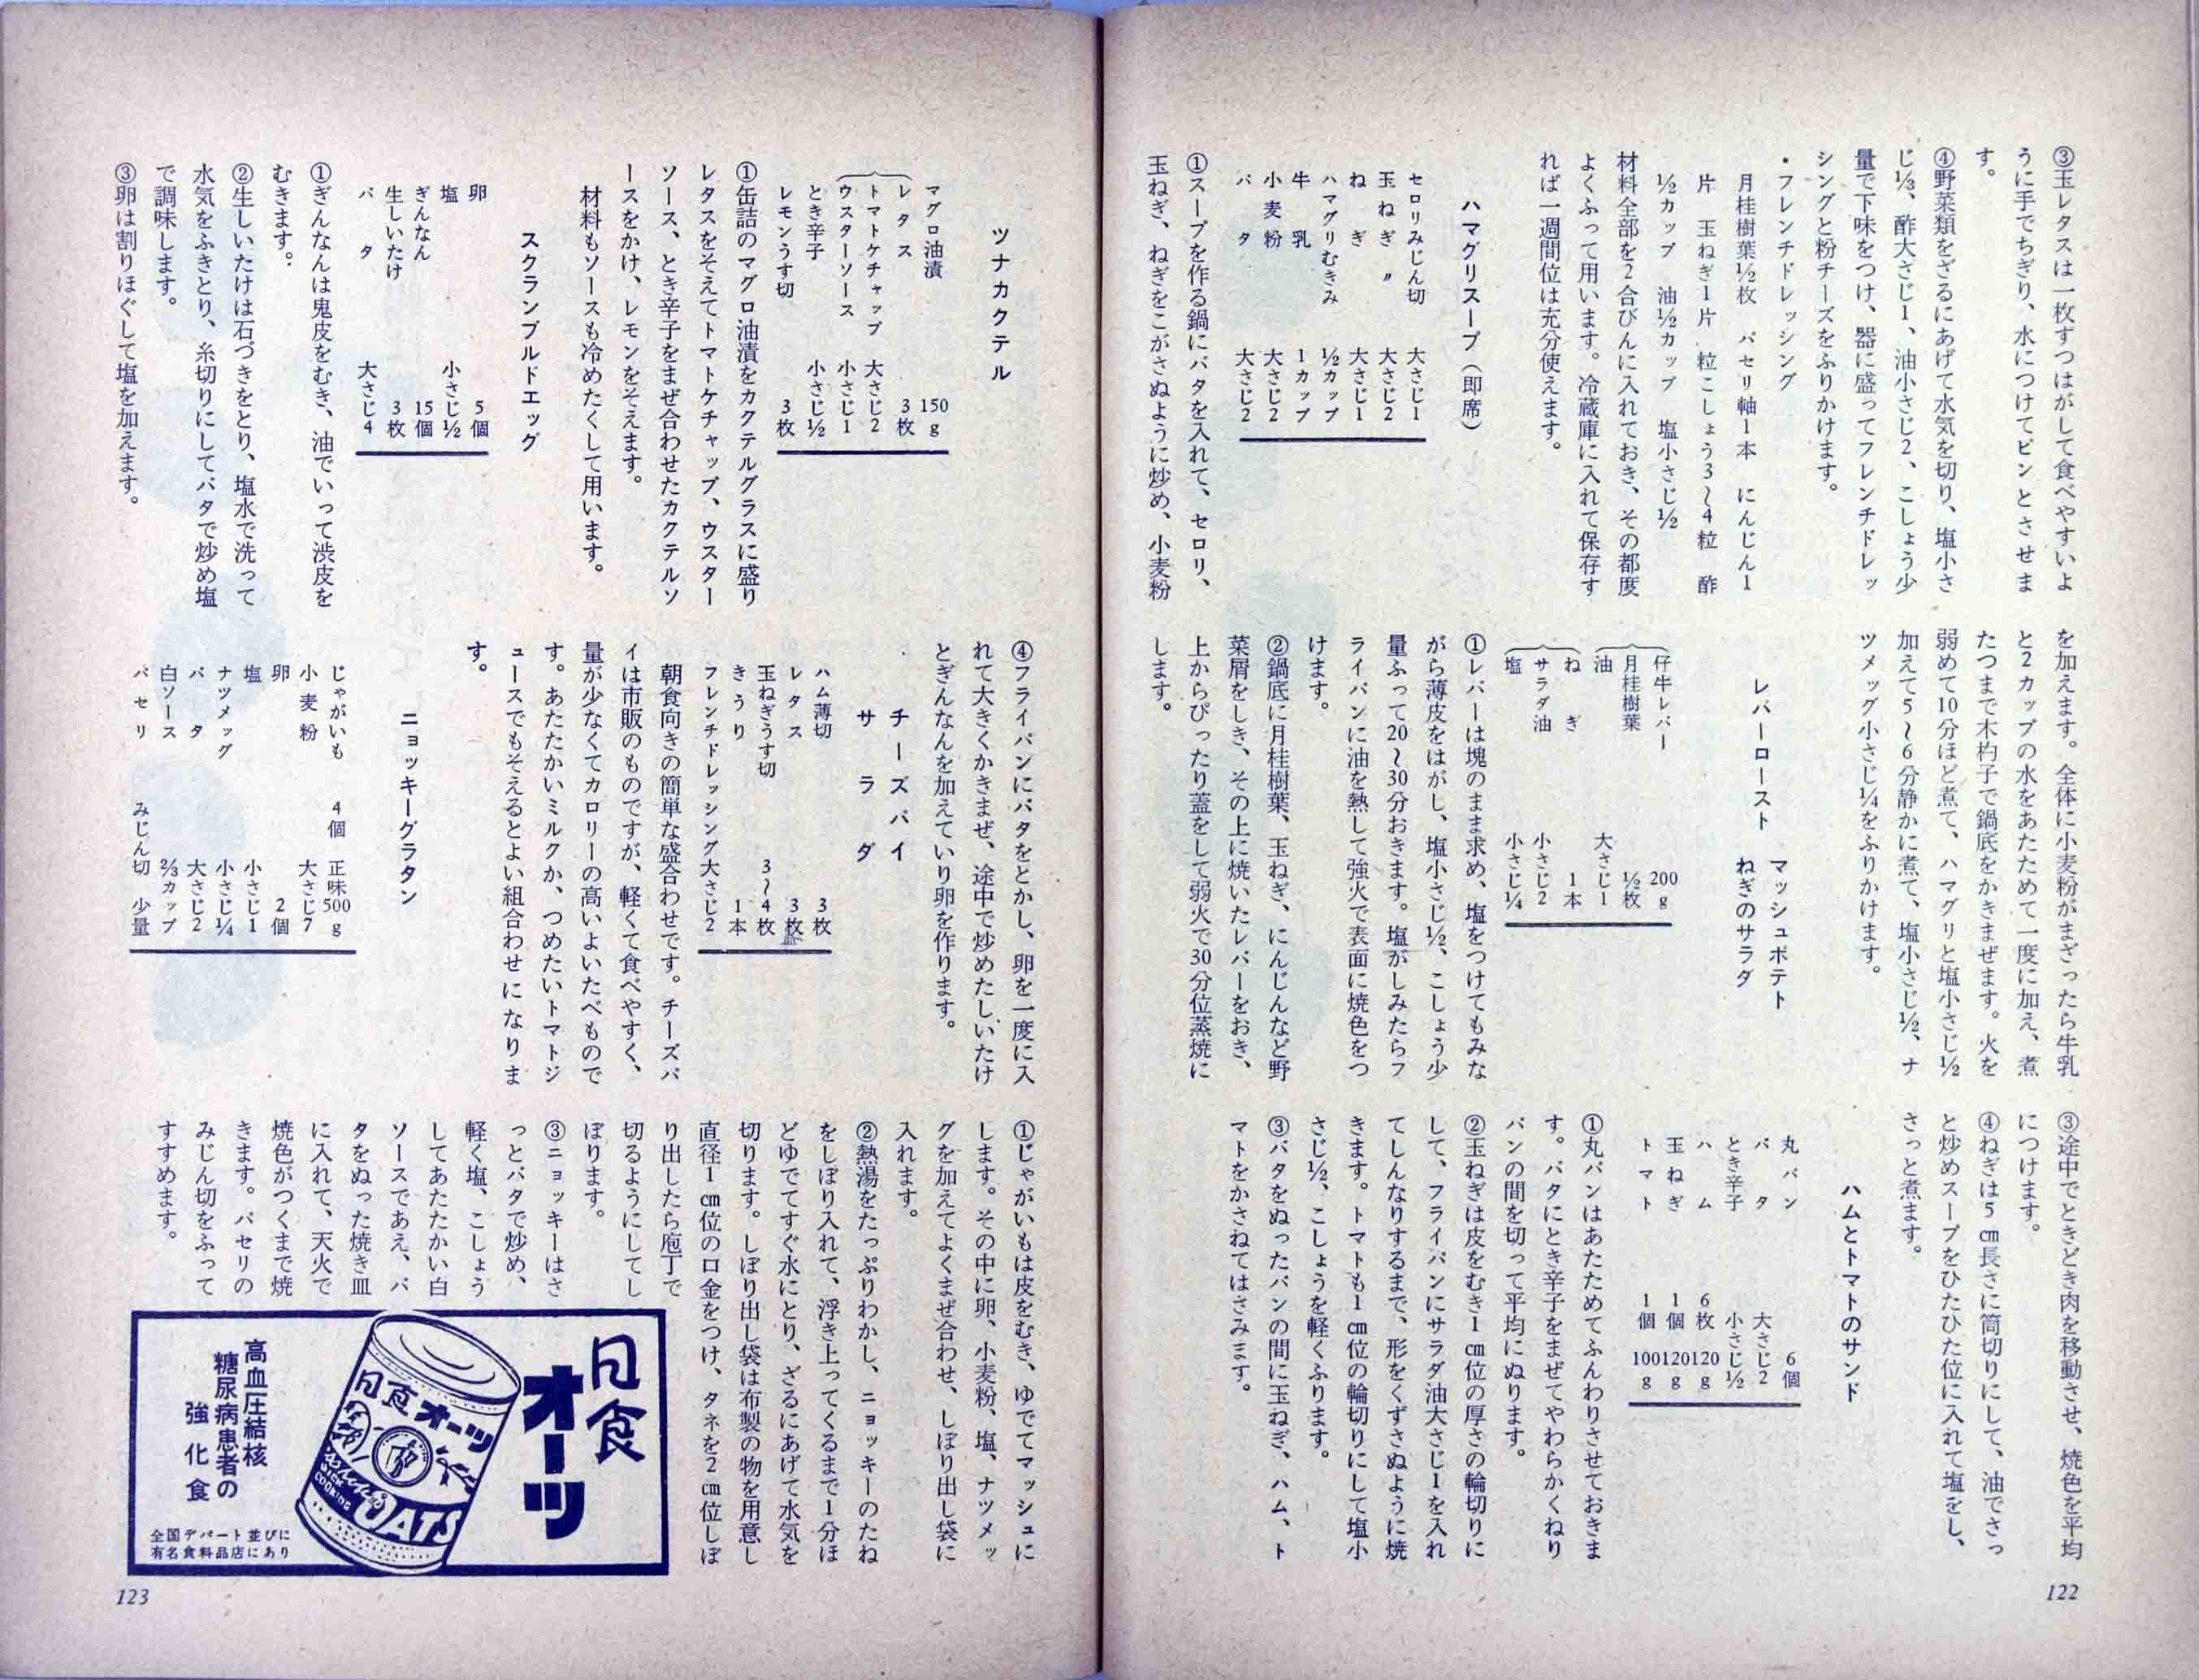 ③玉レタスは一枚ずつはがして食べやすいよ
うに手でちぎり、水につけてピンとさせま
す。
④野菜類をざるにあげて水気を切り、塩小さ
じ⅓、酢大さじ1、油小さじ2、こしょう少
量で下味をつけ、器に盛ってフレンチドレッ
シングと粉チーズをふりかけます。
・フレンチドレッシング
月桂樹葉½枚 パセリ軸1本 にんじん1
片 玉ねぎ1片 粒こしょう3〜4粒 酢
½カップ 油½カップ 塩小さじ½
材料全部を2合びんに入れておき、その都度
よくふって用います。冷蔵庫に入れて保存す
れば一週間位は充分使えます。
ハマグリスープ(即席)
セロリみじん切 大さじ1
玉ねぎ 〃 大さじ2
ねぎ 大さじ1
ハマグリむきみ ½カップ
牛乳 1カップ
小麦粉 大さじ2
バタ 大さじ2
①スープを作る鍋にバタを入れて、セロリ、
玉ねぎ、ねぎをこがさぬように炒め、小麦粉
を加えます。全体に小麦粉がまざったら牛乳
と2カップの水をあたためて一度に加え、煮
たつまで木杓子で鍋底をかきまぜます。火を
弱めて10分ほど煮て、ハマグリと塩小さじ½
加えて5〜6分静かに煮て、塩小さじ½、ナ
ツメッグ小さじ¼をふりかけます。
レバーロースト マッシュポテト
ねぎのサラダ
仔牛レバー 200g
月桂樹葉 ½枚
油 大さじ1
ねぎ 1本
サラダ油 小さじ2
塩 小さじ¼
①レバーは塊のまま求め、塩をつけてもみな
がら薄皮をはがし、塩小さじ½、こしょう少
量ふって20〜30分おきます。塩がしみたらフ
ライパンに油を熱して強火で表面に焼色をつ
けます。
②鍋底に月桂樹葉、玉ねぎ、にんじんなど野
菜屑をしき、その上に焼いたレバーをおき、
上からぴったり蓋をして弱火で30分位蒸焼に
します。
③途中でときどき肉を移動させ、焼色を平均
につけます。
④ねぎは5㎝長さに筒切りにして、油でさっ
と炒めスープをひたひた位に入れて塩をし、
さっと煮ます。
ハムとトマトのサンド
丸パン 6個
バタ 大さじ2
とき辛子 小さじ½
ハム 6枚 120g
玉ねぎ 1個 120g
トマト 1個 100g
①丸パンはあたためてふんわりさせておきま
す。バタにとき辛子をまぜてやわらかくねり
パンの間を切って平均にぬります。
②玉ねぎは皮をむき1㎝位の厚さの輪切りに
して、フライパンにサラダ油大さじ1を入れ
てしんなりするまで、形をくずさぬように焼
きます。トマトも1㎝位の輪切りにして塩小
さじ½、こしょうを軽くふります。
③バタをぬったパンの間に玉ねぎ、ハム、ト
マトをかさねてはさみます。
122
ツナカクテル
マグロ油漬 150g
レタス 3枚
トマトケチャップ 大さじ2
ウスターソース 小さじ1
とき辛子 小さじ½
レモンうす切 3枚
①缶詰のマグロ油漬をカクテルグラスに盛り
レタスをそえてトマトケチャップ、ウスター
ソース、とき辛子をまぜ合わせたカクテルソ
ースをかけ、レモンをそえます。
材料もソースも冷めたくして用います。
スクランブルドエッグ
卵 5個
塩 小さじ½
ぎんなん 15個
生しいたけ 3枚
バタ 大さじ4
①ぎんなんは鬼皮をむき、油でいって渋皮を
むきます。
②生しいたけは石づきをとり、塩水で洗って
水気をふきとり、糸切りにしてバタで炒め塩
で調味します。
③卵は割りほぐして塩を加えます。
④フライパンにバタをとかし、卵を一度に入
れて大きくかきまぜ、途中で炒めたしいたけ
とぎんなんを加えていり卵を作ります。
チーズパイ
サラダ
ハム薄切 3枚
レタス 3枚
玉ねぎうす切 3〜4枚
きうり 1本
フレンチドレッシング 大さじ2
朝食向きの簡単な盛合わせです。チーズパ
イは市販のものですが、軽くて食べやすく、
量が少なくてカロリーの高いよいたべもので
す。あたたかいミルクか、つめたいトマトジ
ュースでもそえるとよい組合わせになりま
す。
ニョッキーグラタン
じゃがいも 4個 正味500g
小麦粉 大さじ7
卵 2個
塩 小さじ1
ナツメッグ 小さじ¼
バタ 大さじ2
白ソース ⅔カップ
パセリ みじん切 少量
①じゃがいもは皮をむき、ゆでてマッシュに
します。その中に卵、小麦粉、塩、ナツメッ
グを加えてよくまぜ合わせ、しぼり出し袋に
入れます。
②熱湯をたっぷりわかし、ニョッキーのたね
をしぼり入れて、浮き上ってくるまで1分ほ
どゆでてすぐ水にとり、ざるにあげて水気を
切ります。しぼり出し袋は布製の物を用意し
直径1㎝位の口金をつけ、タネを2㎝位しぼ
り出したら庖丁で
切るようにしてし
ぼります。
③ニョッキーはさ
っとバタで炒め、
軽く塩、こしょう
してあたたかい白
ソースであえ、バ
タをぬった焼き皿
に入れて、天火で
焼色がつくまで焼
きます。パセリの
みじん切をふって
すすめます。
日食
オーツ
日食オーツ
QUICK
COOKING
OATS
高血圧結核
糖尿病患者の
強化食
全国デパート並びに
有名食料品店にあり
123